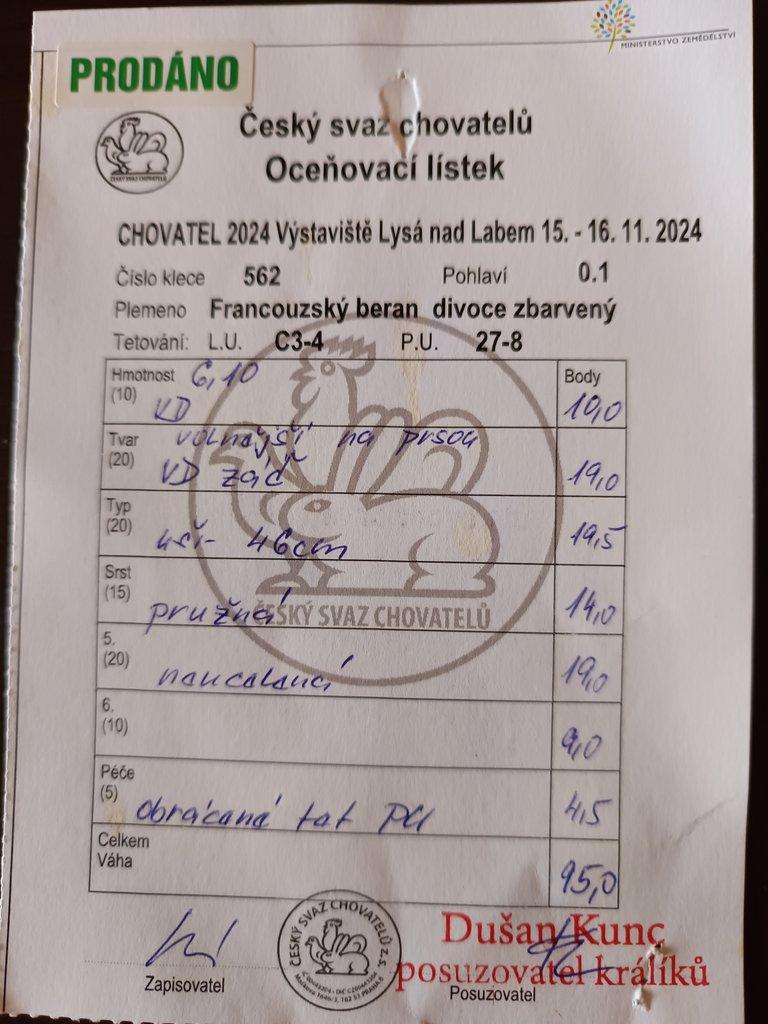 MINISTERSTVO ZEMĚDĚLSTVÍ
PRODÁNO
Český svaz chovatelů
Oceňovací lístek
CHOVATEL 2024 Výstaviště Lysá nad Labem 15. - 16. 11. 2024
Číslo klece 562 Pohlaví 0.1
Plemeno Francouzský beran divoce zbarvený
Tetování: L.U. C3-4 P.U. 27-8
Hmotnost 6,10 Body
(10) VD 10,0
Tvar volnější na prsou
(20) VD záď 19,0
Typ
(20) uši- 46cm 19,5
Srst
(15) pružná 14,0
5.
(20) 19,0
6.
(10) 9,0
Péče
(5) obrácaná tat PU 4,5
Celkem
Váha 95,0
ČESKÝ SVAZ CHOVATELŮ
Dušan Kunc
posuzovatel králíků
Zapisovatel
ČESKÝ SVAZ CHOVATELŮ z.s.
Posuzovatel